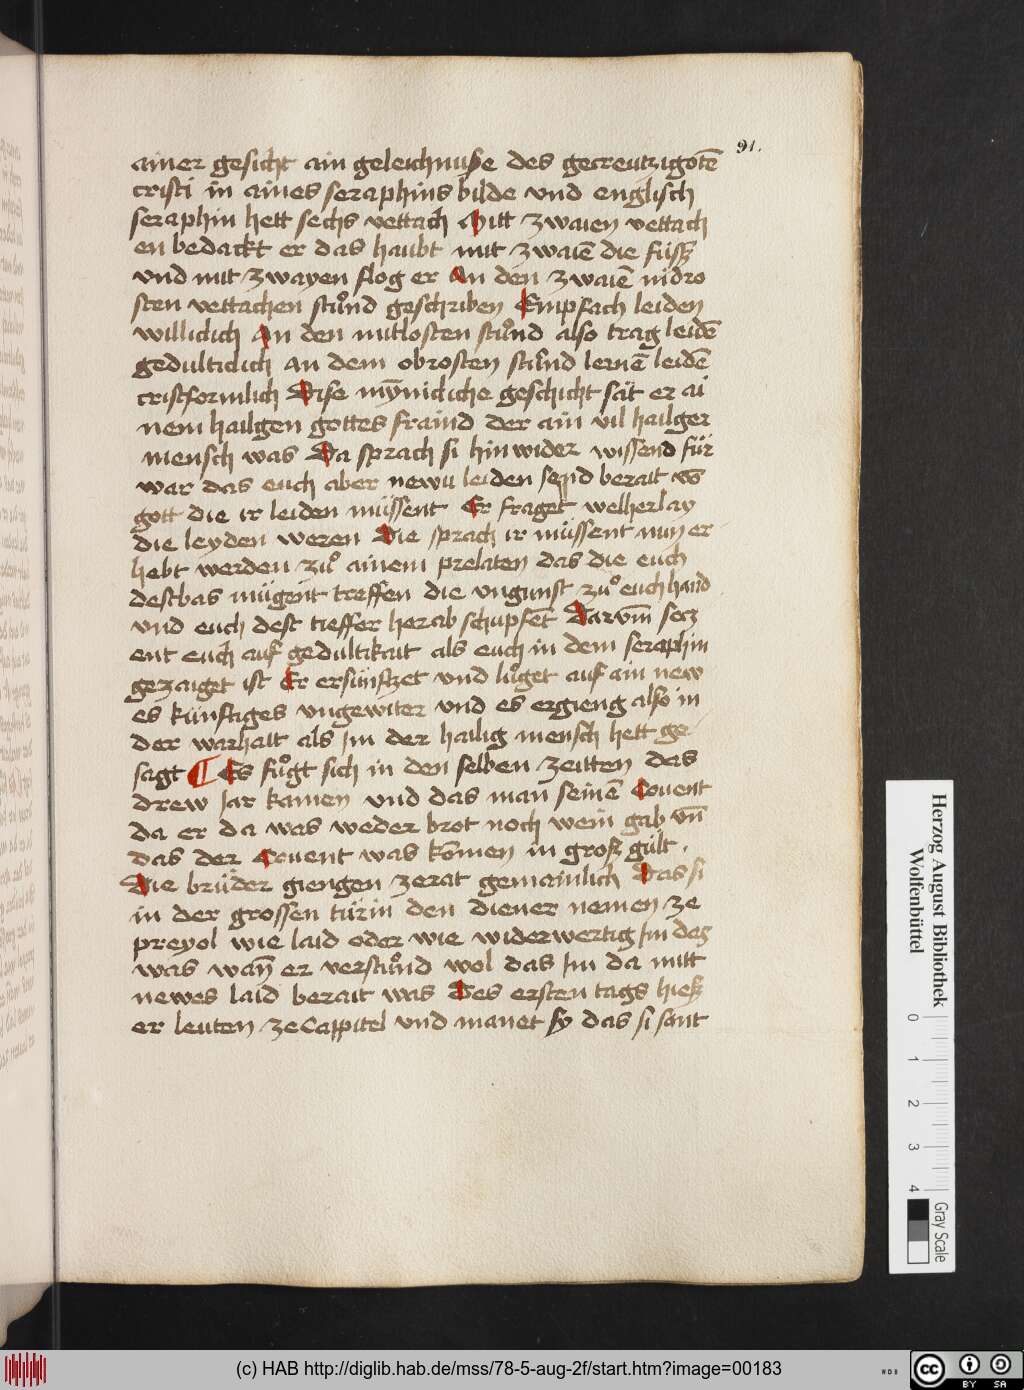 91.
ainer gesicht ain geleichnuße des gecreutzigotē
cristi in aines seraphins bilde vnd englisch
seraphin hett sechs vettach Mitt zwaien vettach
en bedackt er das haubt mit zwaiē die fuͤsß
vnd mit zwayen flog er An den zwaiē nidro
sten vettachen stuͦnd geschriben Empfach leiden
williclich An den mitlosten stuͦnd also trag leidē
gedulticlich An dem obrosten stuͦnd lernē leidē
cristformlich Dise mȳnicliche geschicht sät er ai
nem hailgen gottes fraind der ain vil hailger
mensch was Da sprach si hin wider wissend für
war das euch aber newu leiden send berait vō
gott die ir leiden müssent Er fraget welherlay
die leyden weren Die sprach ir müssent nun er
hebt werden zuͦ ainem prelaten das die euch
destbas mügent treffen die vngunst zuͦ euch hand
vnd euch dest tieffer herab schupfēt Darvm̄ secz
ent euch auf gedultikait als euch in dem seraphin
gezaiget ist Er ersünftzet vnd luͦget auf ain new
es künftiges vngewiter vnd es ergieng also in
der warhait als Im der hailig mensch hett ge
sagt ¶ Es fuͦgt sich in den selben zeitten das
drew Jar kamen vnd das man seinē Couent
da er da was weder brot noch wein gab vn̄
das der Couent was kōmen in groß gült.
Die brüder giengen zerat gemainlich Das si
in der grossen türin den diener nemen ze
preyol wie laid oder wie widerwertig Im dez
was wan̄ er verstuͦnd wol das Im da mitt
newes laid berait was Des ersten tags hieß
er leuten ze Cappitel vnd manet sy das si sant
Herzog August Bibliothek
Wolfenbüttel
0 1 2 3 4
Gray Scale
(c) HAB http://diglib.hab.de/mss/78-5-aug-2f/start.htm?image=00183
WDB
cc BY SA